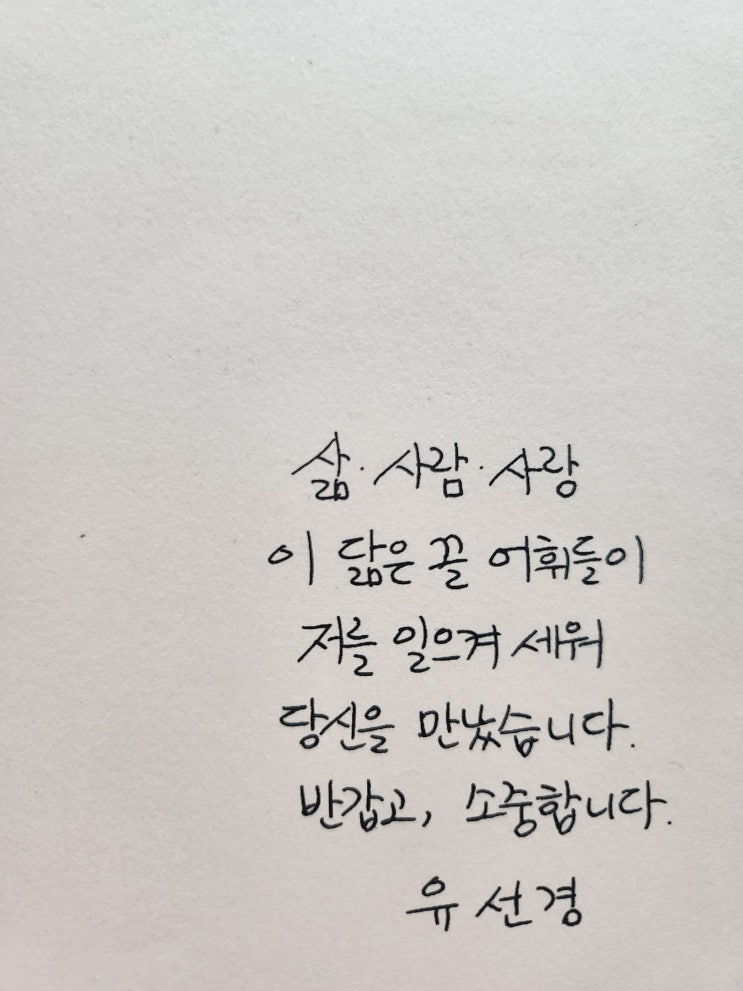 삶·사람·사랑
이 닮은 꼴 어휘들이
저를 일으켜 세워
당신을 만났습니다.
반갑고, 소중합니다.
유선경